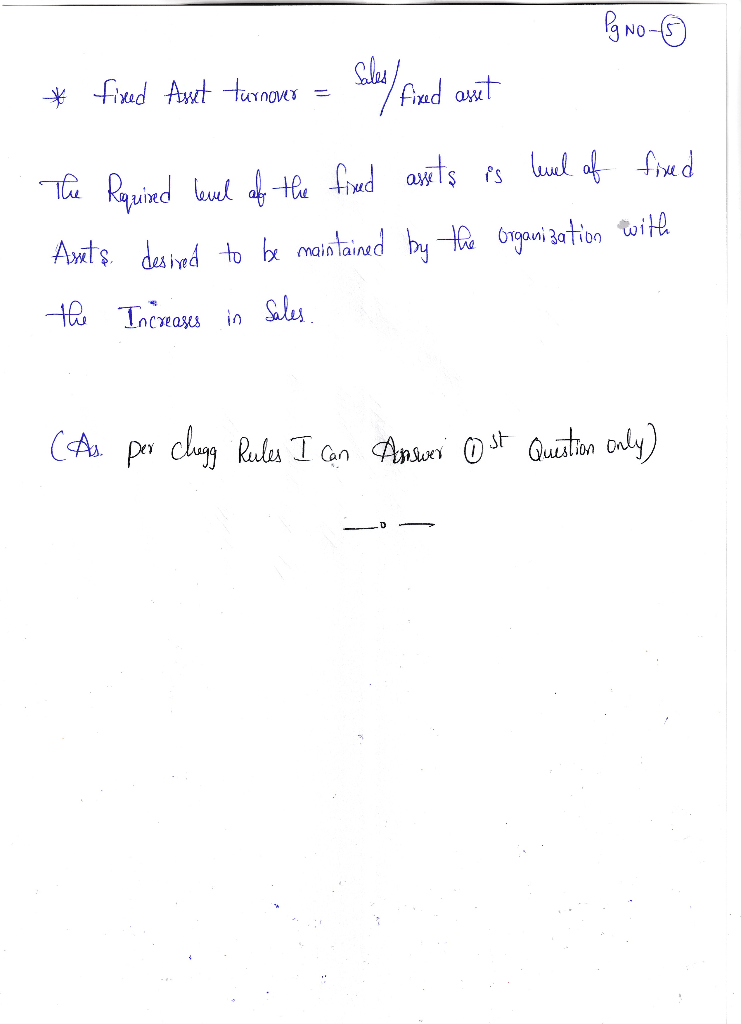 Pg NO-⑤
* fixed Asset turnover = Sales/fixed asset
The Required level of the fixed assets is level of fixed
Assets. desired to be maintained by the Organization with
the Increases in Sales.
(As per chegg Rules I Can Answer ① st Question only)